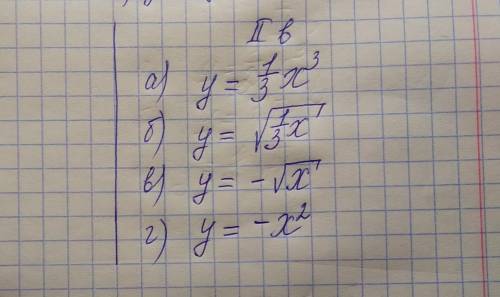 II в
а) y = 1/3 x³
б) y = √(1/3 x)
в) y = -√x
г) y = -x²